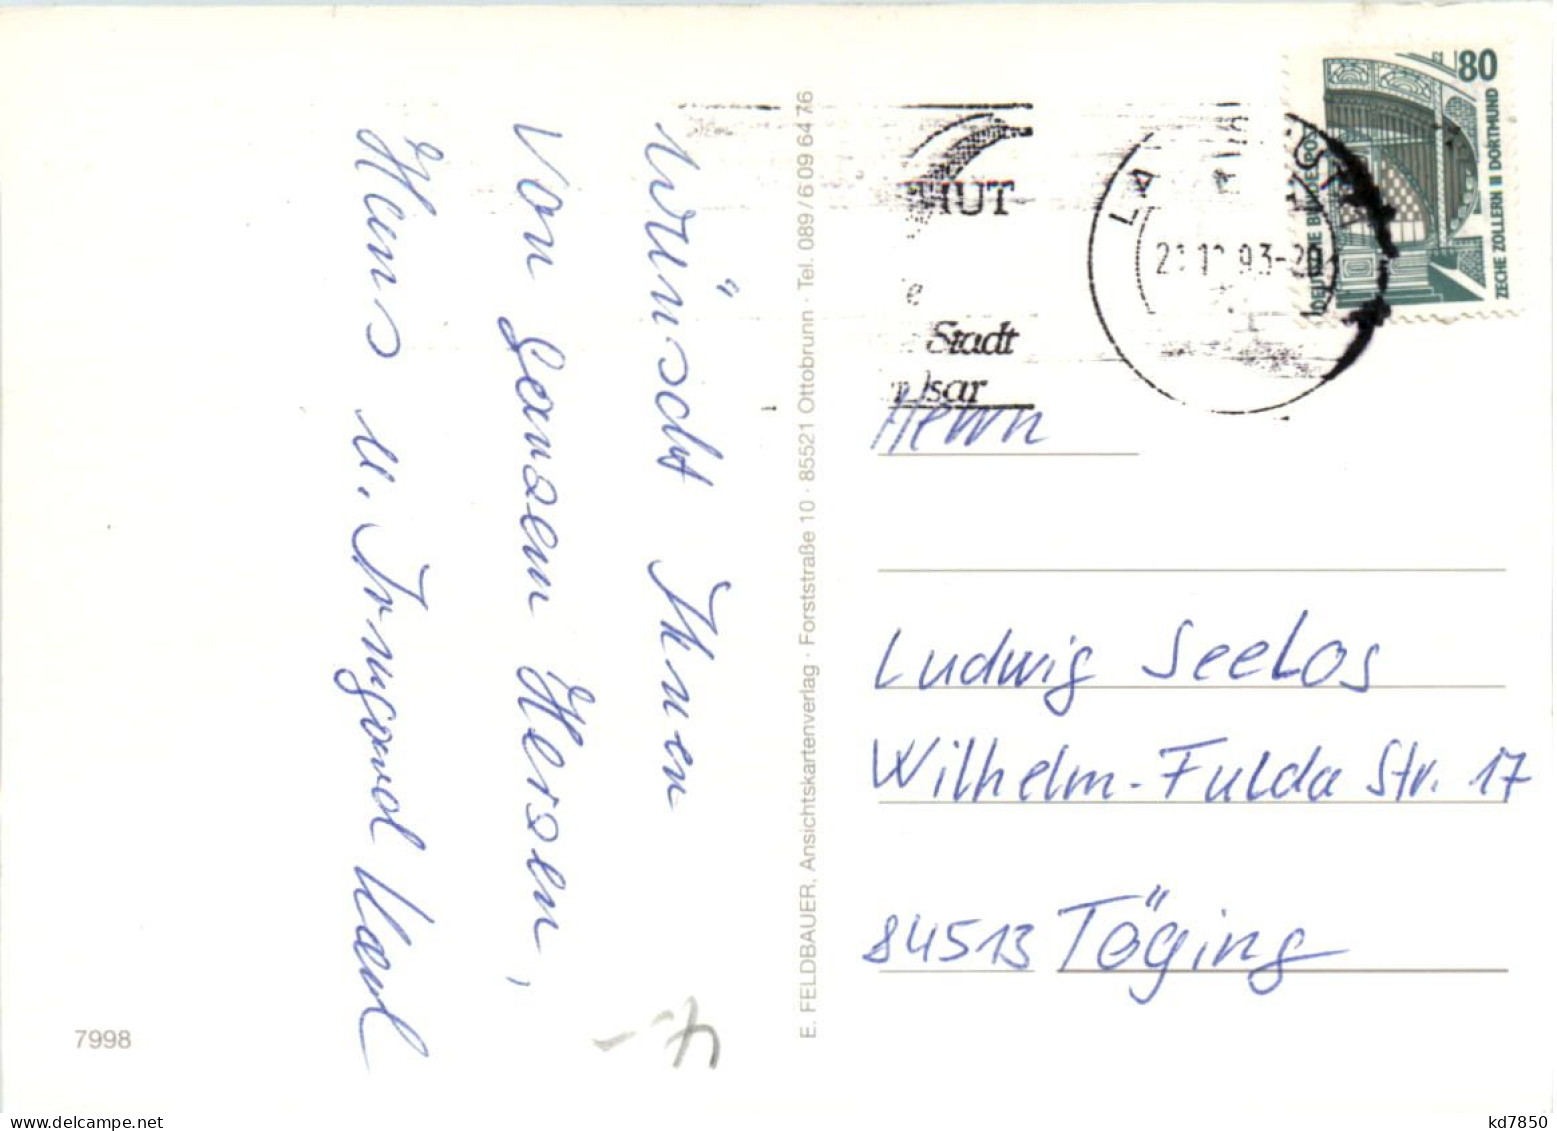 Wünscht Ihnen
Von Ganzem Herzen,
Hans u. Irmgard Karl
7998
E. FELDBAUER, Ansichtskartenverlag · Forststraße 10 · 85521 Ottobrunn · Tel. 089/6 09 64 76
HUT
Stadt
Isar
93-20
80
DEUTSCHE BUNDESPOST
ZECHE ZOLLERN II DORTMUND
Herrn
Ludwig Seelos
Wilhelm-Fulda Str. 17
84513 Töging
kd7850